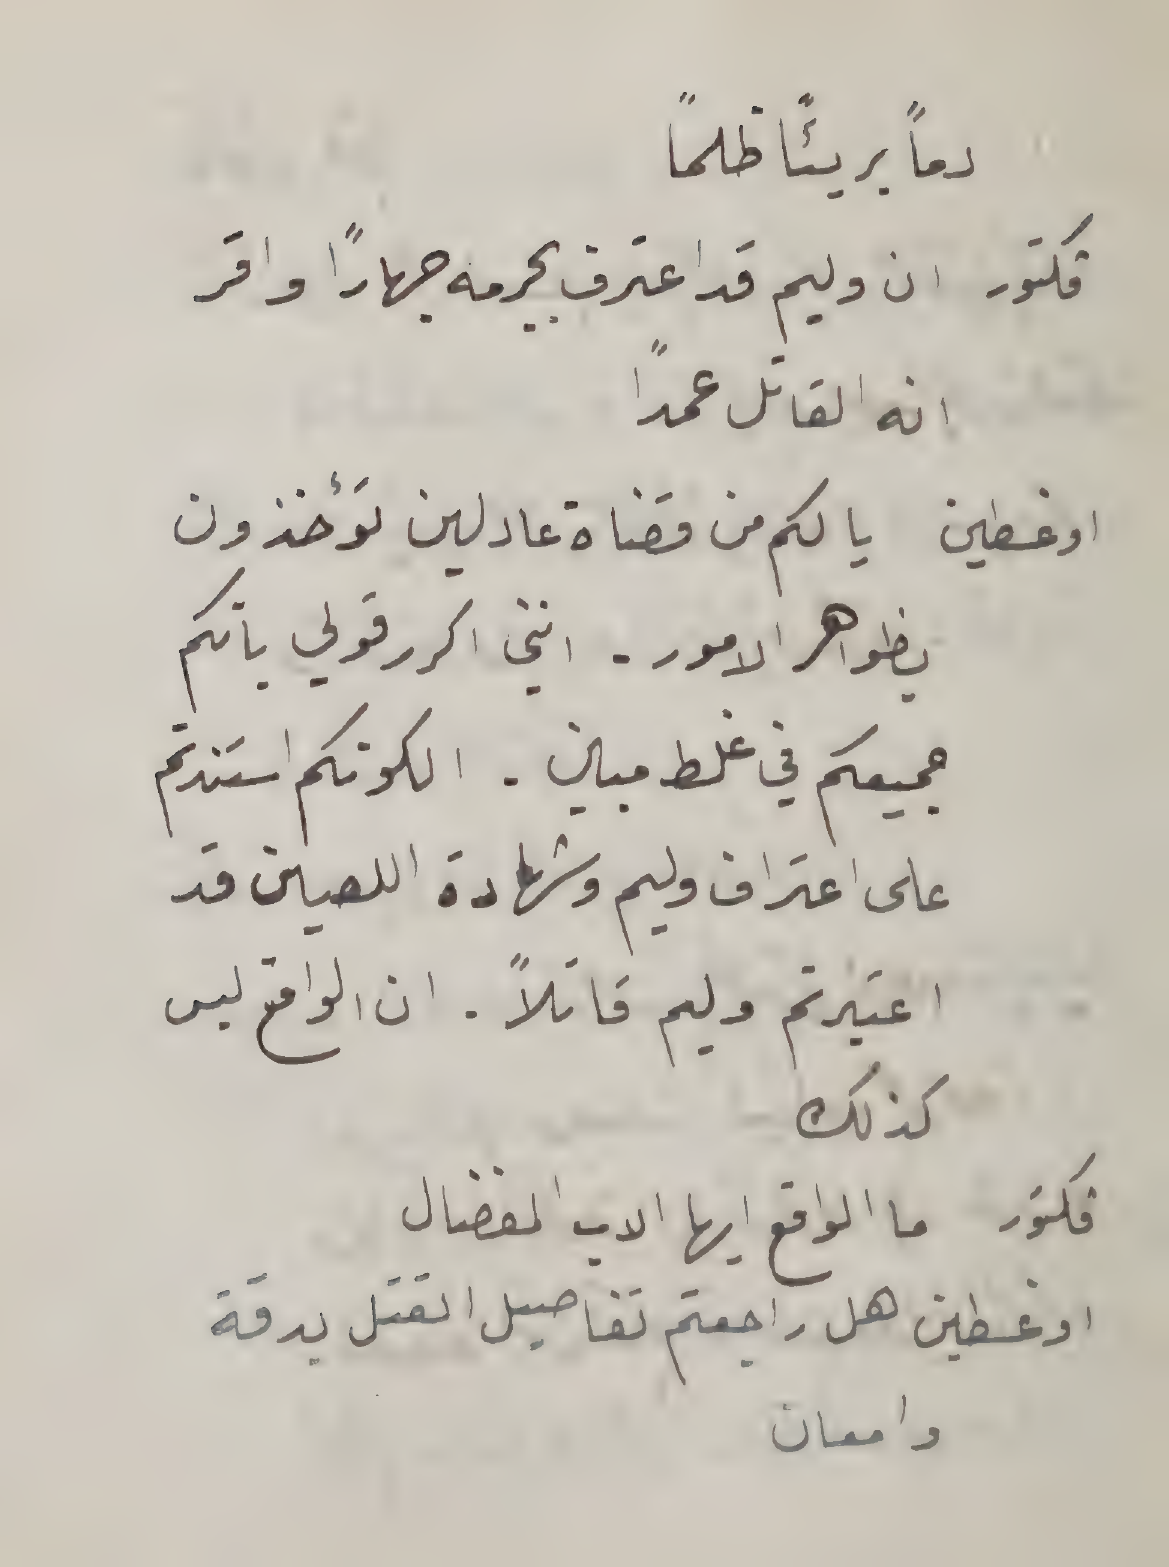 دماً بريئًا ظلماً
فكتور ان وليم قد اعترف بجرمه جهارًا واقر
انه القاتل عمدًا
اوغسطين يا لكم من قضاة عادلين تؤخذون
بظواهر الامور . انني اكرر قولي بانكم
جميعكم في غلط مبين . الكونكم استندتم
على اعتراف وليم وشهادة اللصين قد
اعتبرتم وليم قاتلاً . ان الواقع ليس
كذلك
فكتور ما الواقع ايها الاب المفضال
اوغسطين هل راجعتم تفاصيل القتل بدقة
وامعان